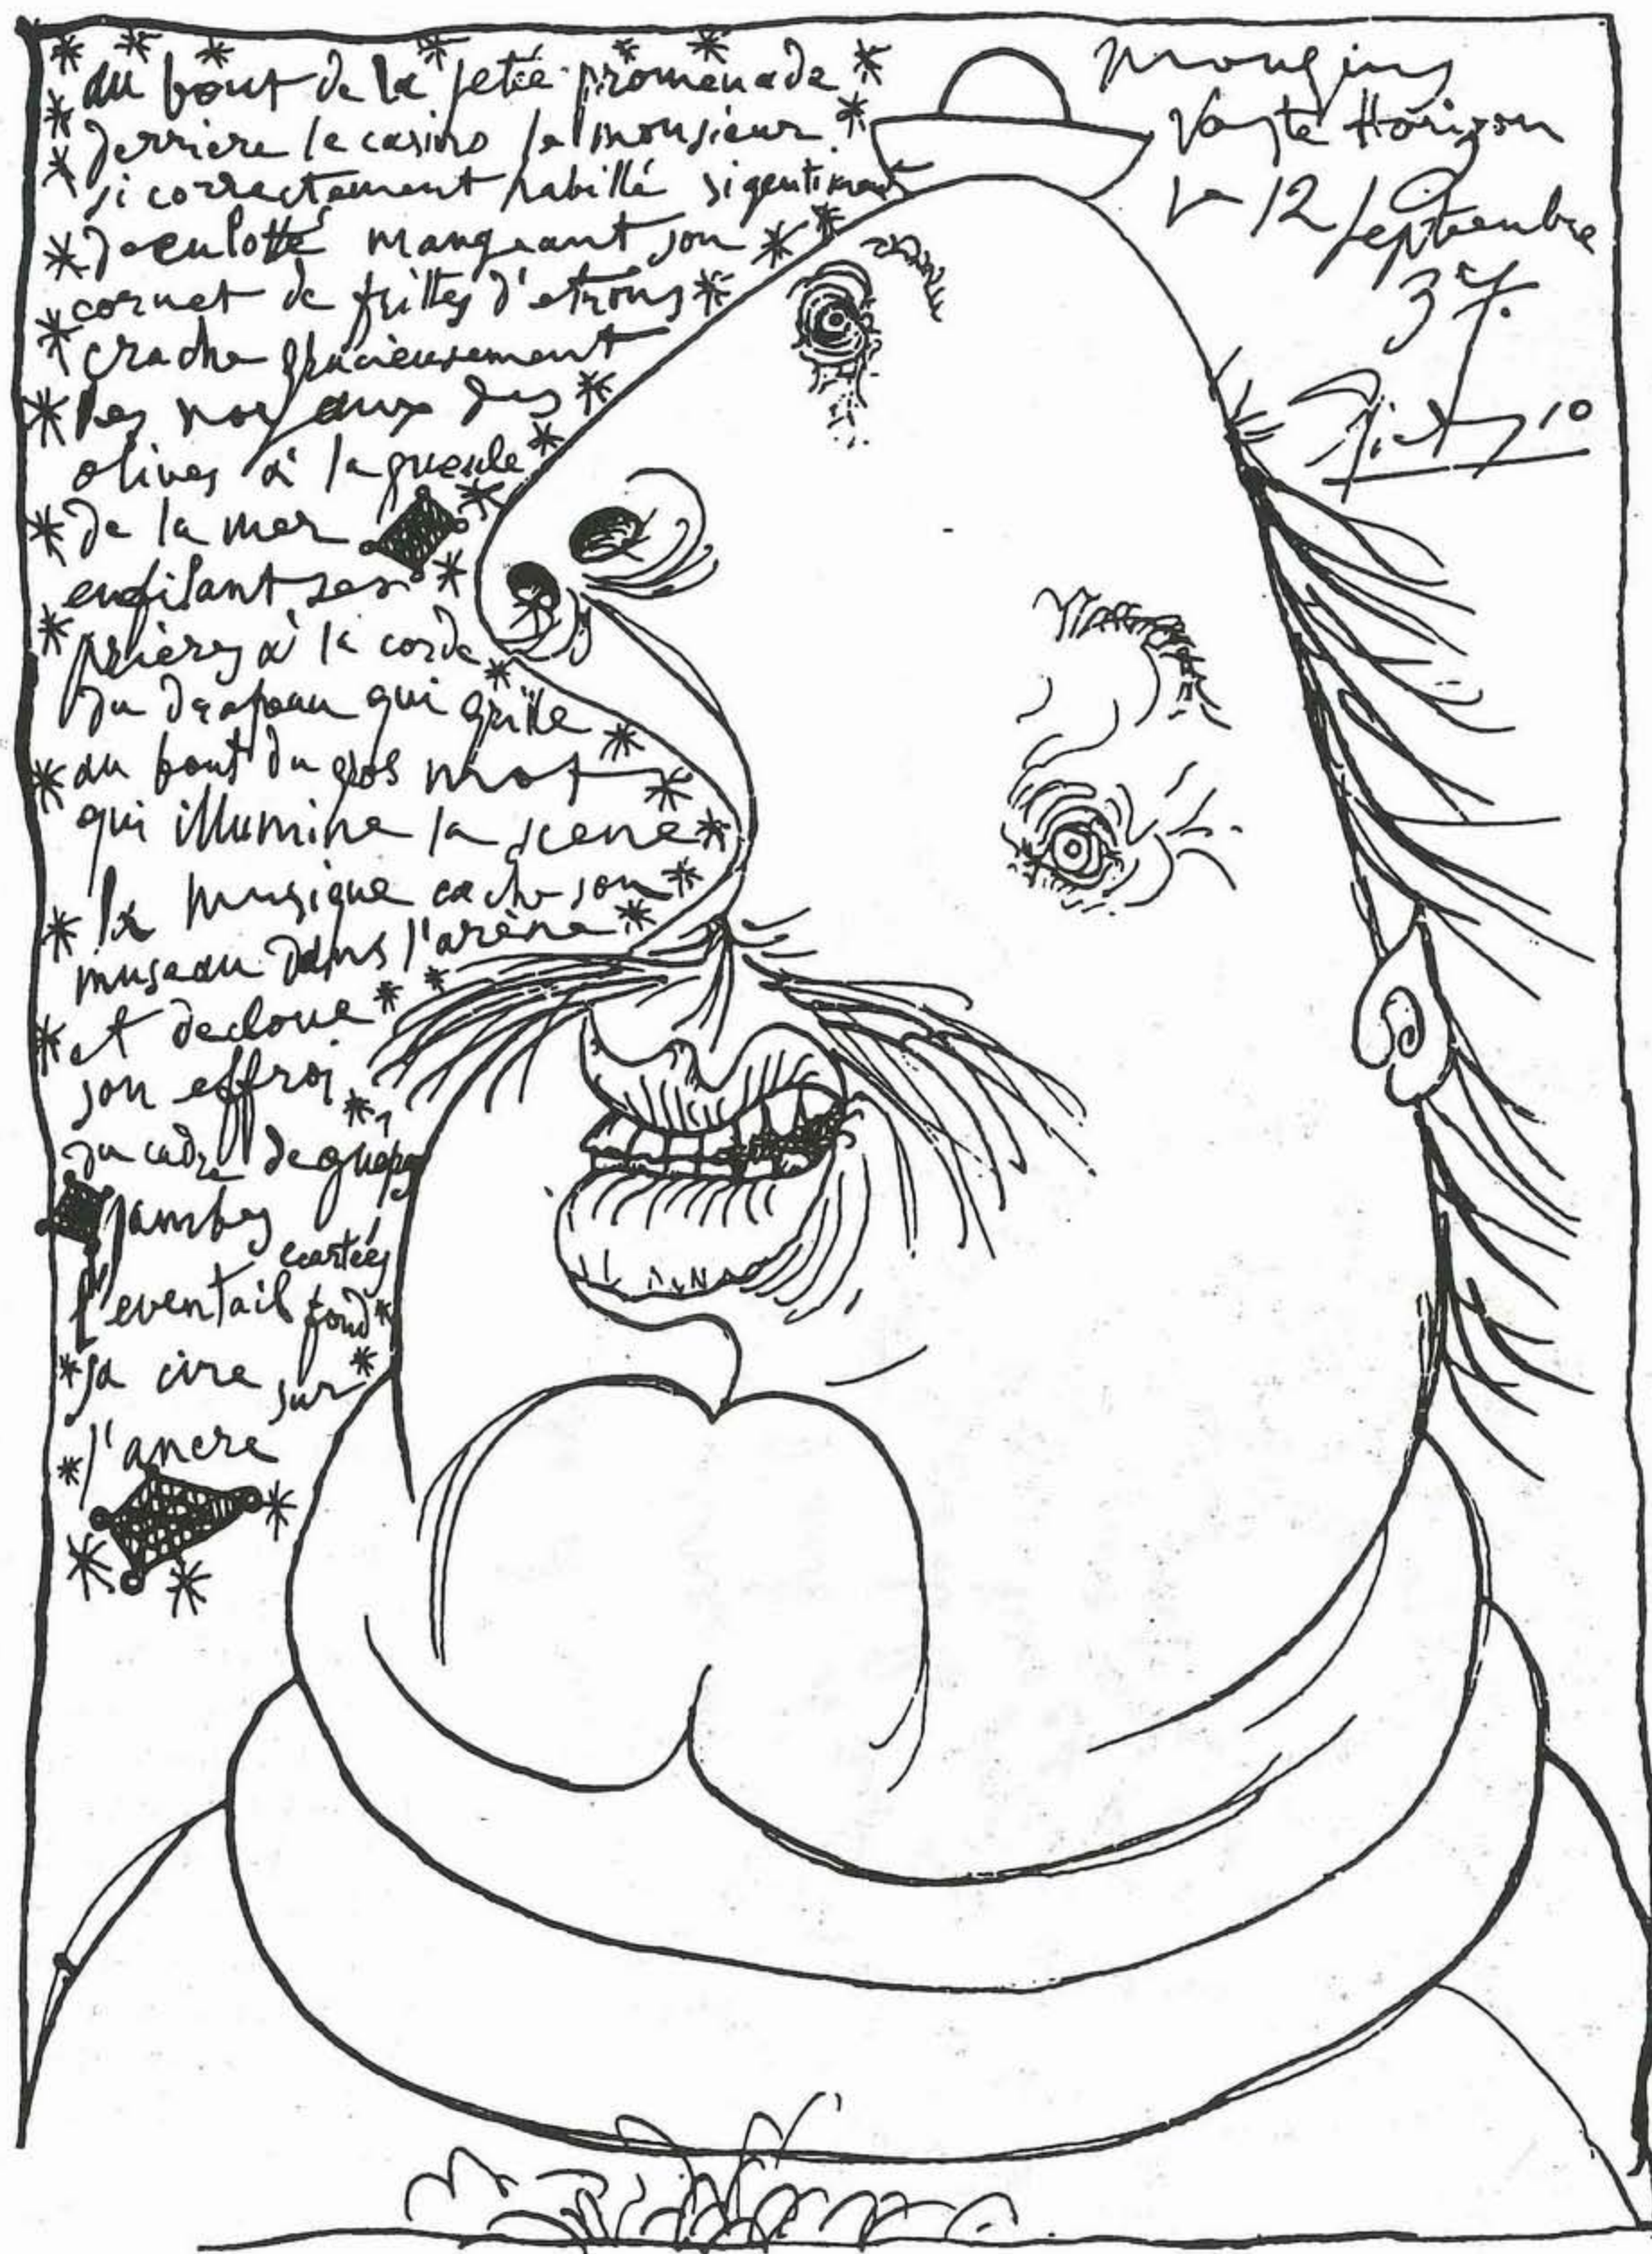 au bout de la jetée promenade
derriere le casino le monsieur
si correctement habillé si gentiment
deculotté mangeant son
cornet de frittes d'etrons
crache gracieusement
les noyaux des
olives à la gueule
de la mer
enfilant ses
prières à la corde
du drapeau qui grille
au bout du gros mot
qui illumine la scene
la musique cache son
museau dans l'arène
et decloue
son effroi
du cadre de guêpes
jambes
ecartées
l'eventail fond
sa cire sur
l'ancre
Mougins
Vaste Horizon
le 12 septembre
37.
Picasso